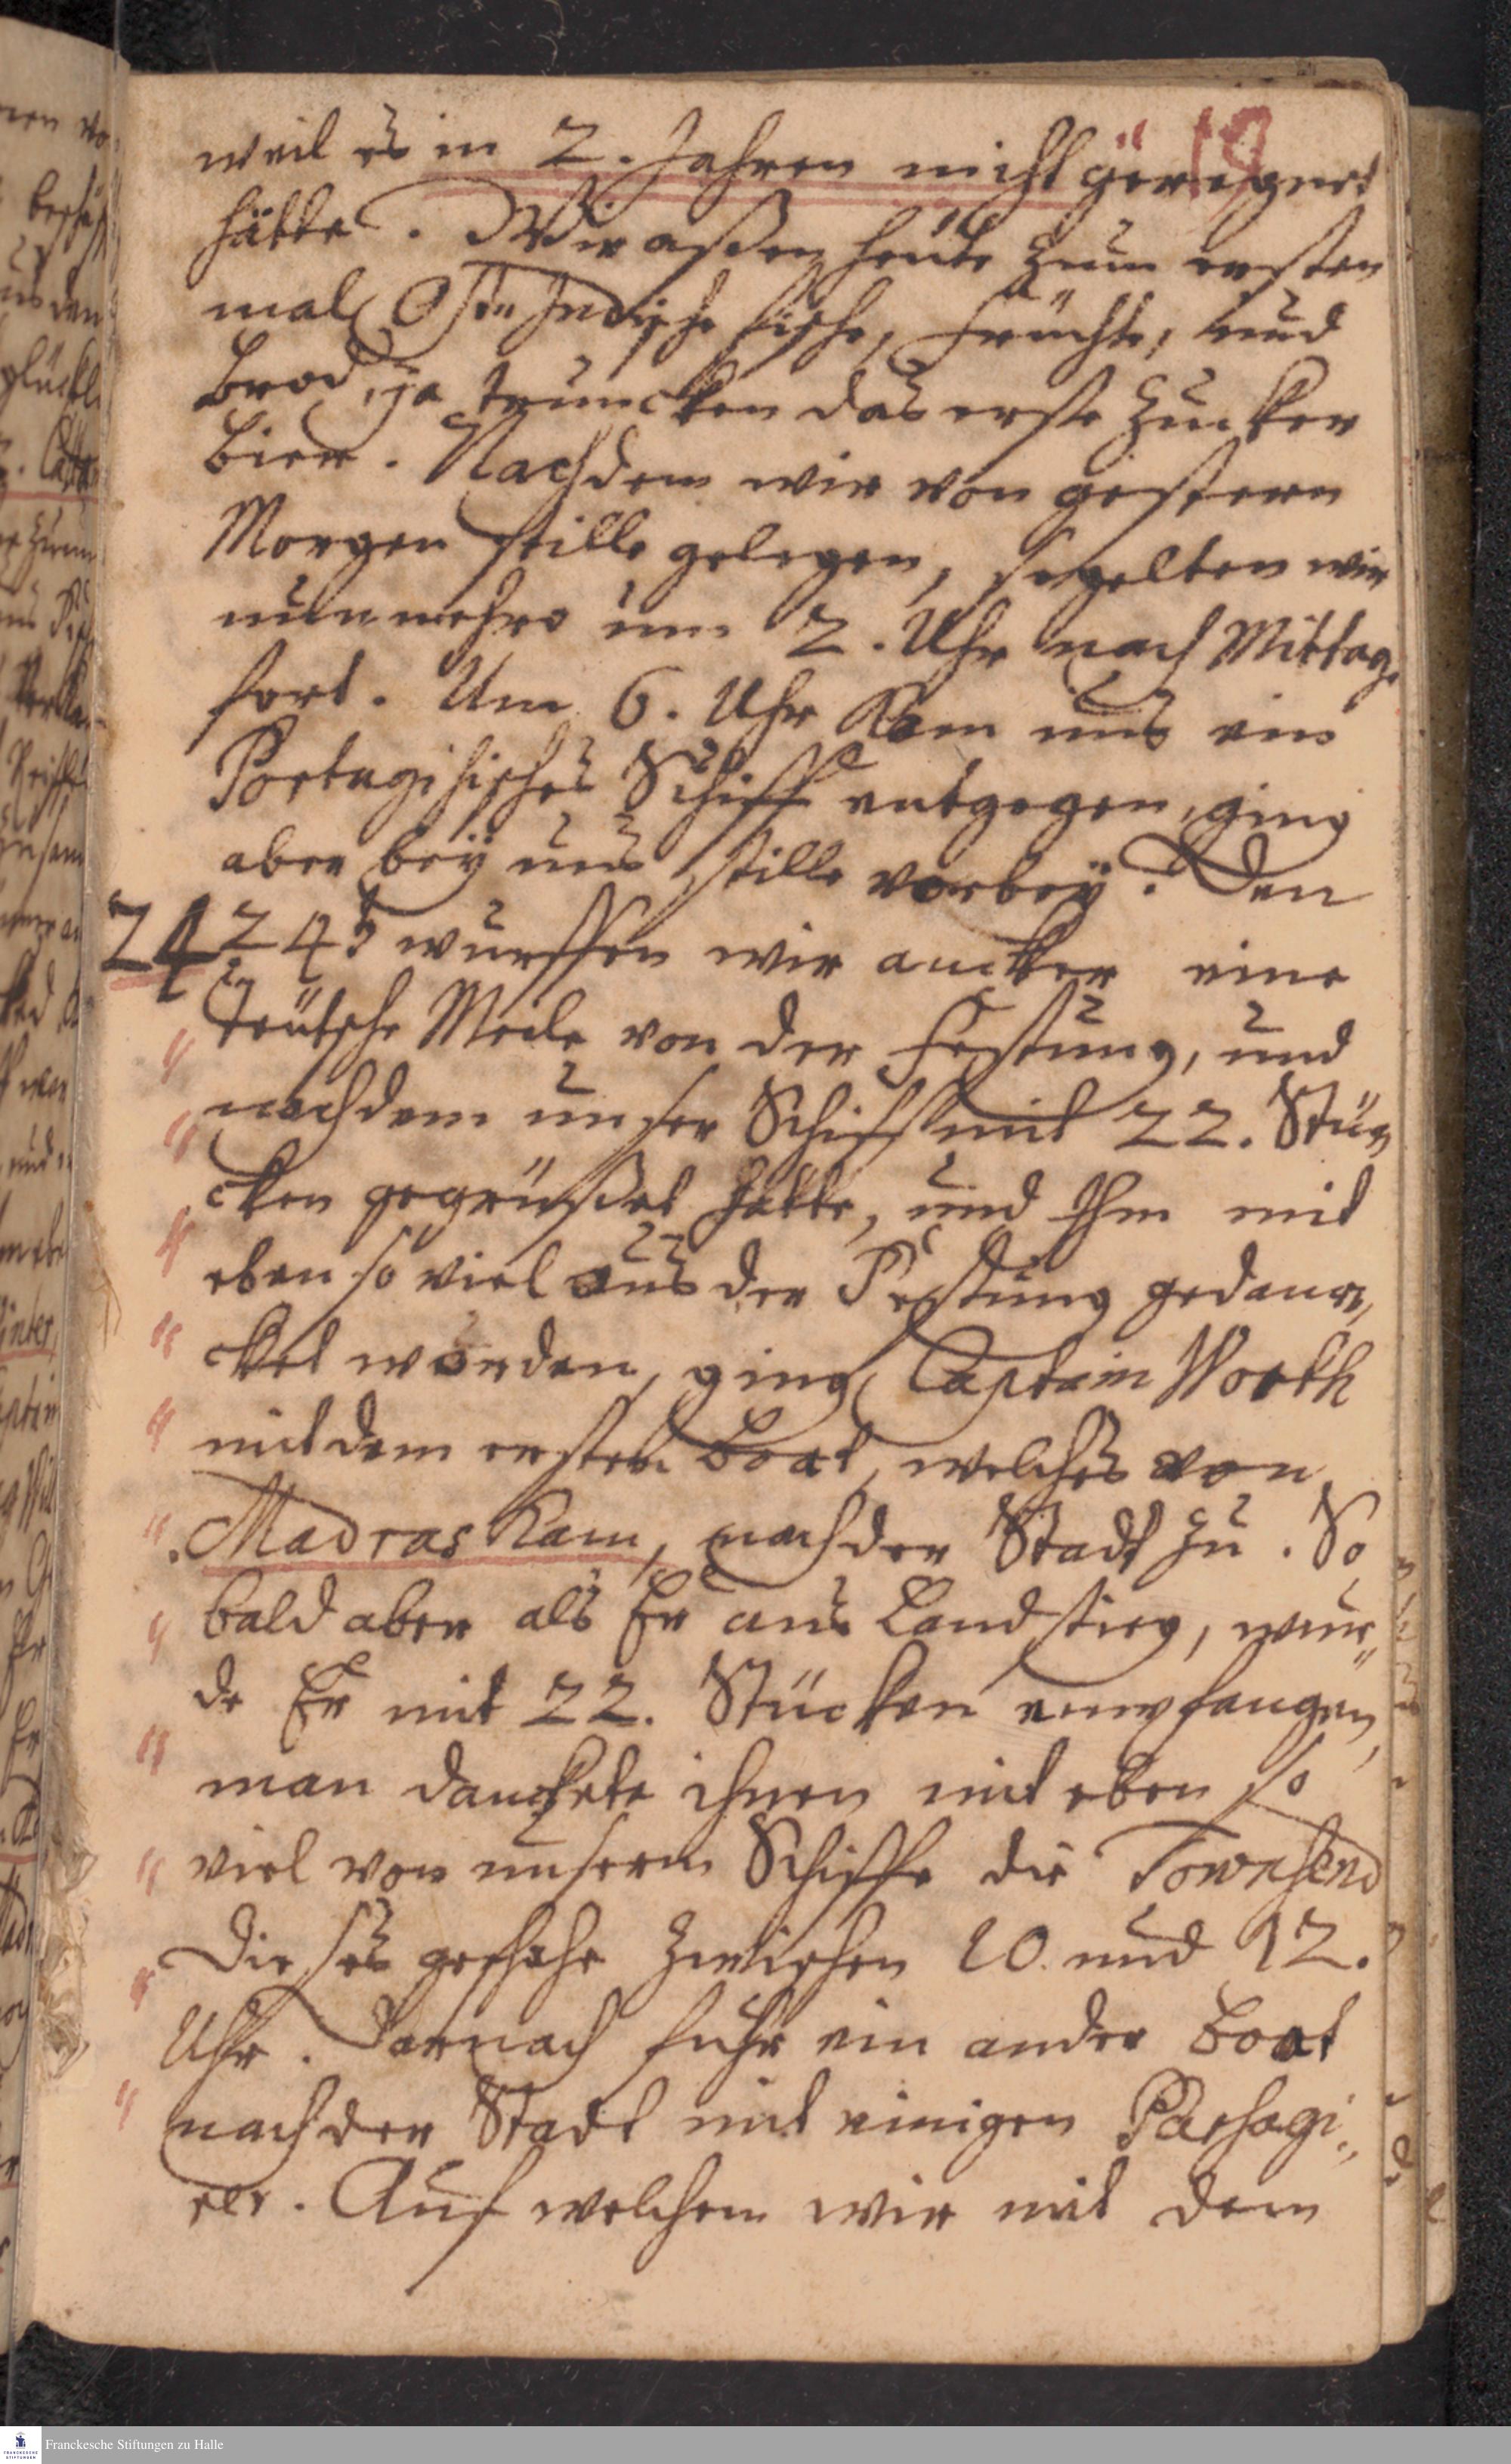 19
weil es in 2. Jahren nicht geregnet
hätte. Wir aßen heute zum ersten
mal Ost Indische fische, Früchte, und
Brod, ja truncken das erste Zucker
Bier. Nachdem wir von gestern
Morgen stille gelegen, segelten wir
nunmehro um 2. Uhr nach Mittag
fort. Um 6. Uhr kam uns ein
Portugisisches Schiff entgegen, ging
aber beÿ uns stille vorbeÿ. Den
24 24t wurffen wir ancker eine
teütsche Meile von der Festung, und
nachdem unser Schiff mit 22. Stü-
cken gegrüßet hatte, und Ihm mit
eben so viel aus der Festung gedan-
cket worden, ging Captain Worth
mit dem ersten Boot, welches von
Madras kam, nach der Stadt zu. So
bald aber als Er ans Land stieg, wur-
de Er mit 22. Stücken empfangen,
man danckete ihnen mit eben so
viel von unserm Schiffe die Townsend
Dieses geschahe zwischen 10. und 12.
Uhr. Darnach fuhr ein ander Boot
nach der Stadt mit einigen Passagi-
rer. Auf welchem wir mit dem
Franckesche Stiftungen zu Halle